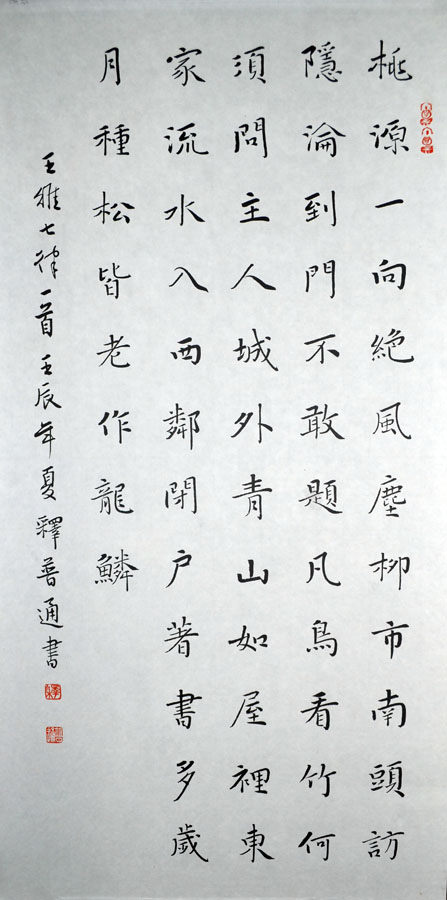 桃源一向絕風塵柳市南頭訪
隱淪到門不敢題凡鳥看竹何
須問主人城外青山如屋裡東
家流水入西鄰閉户著書多歲
月種松皆老作龍鱗
王維七律一首 壬辰年夏 釋普通書